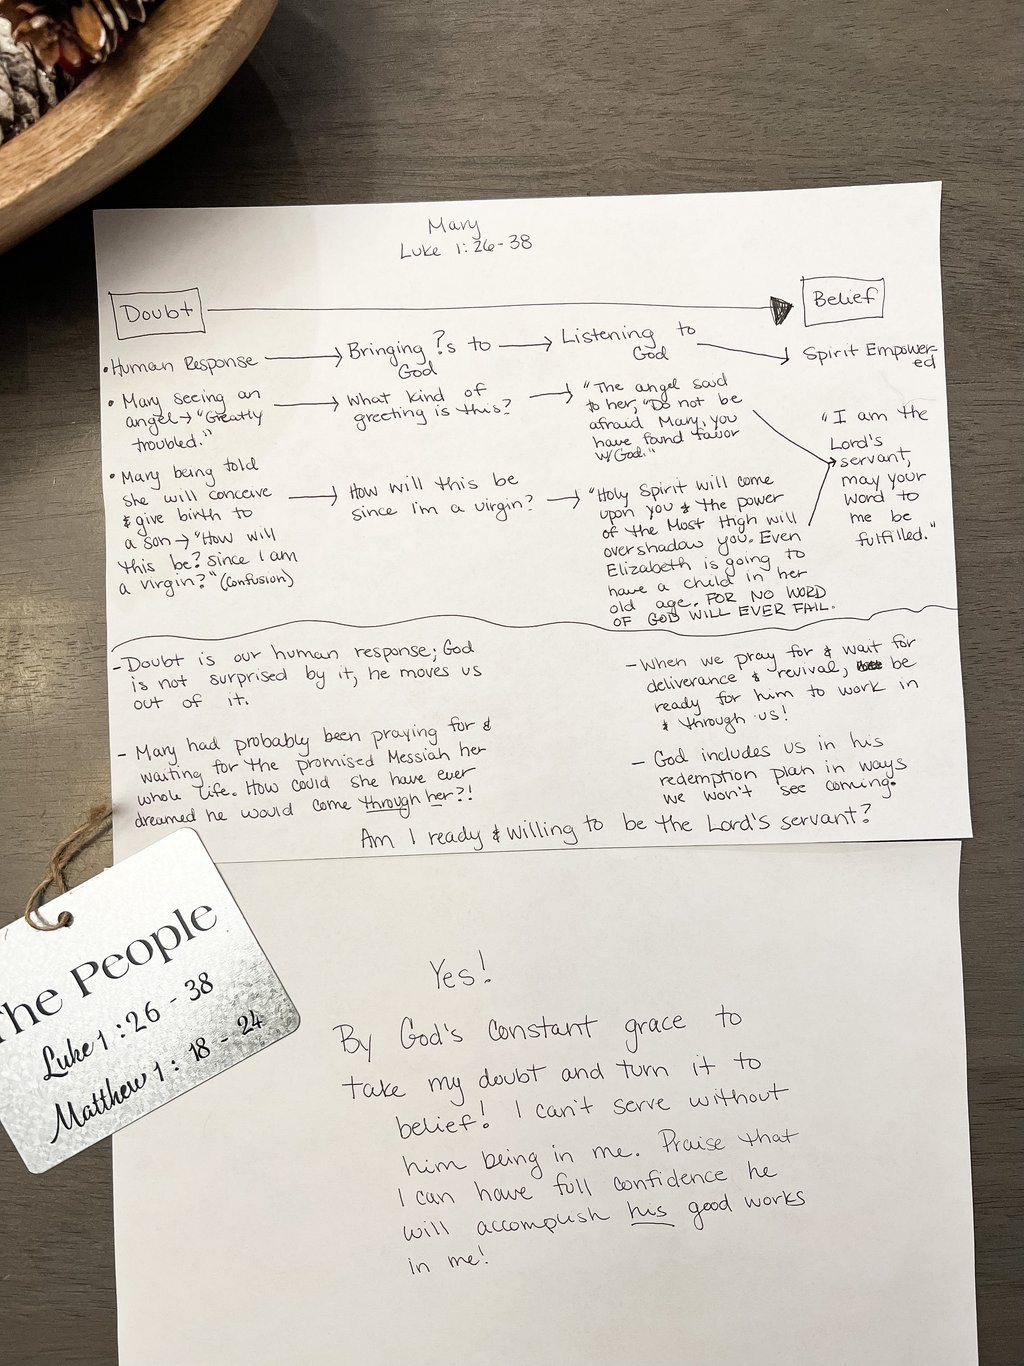 Mary
Luke 1:26-38
Doubt
Belief
• Human Response
Bringing ?s to
God
Listening to
God
Spirit Empower-
ed
• Mary seeing an
angel → "Greatly
troubled."
What kind of
greeting is this?
"The angel said
to her, "Do not be
afraid Mary, you
have found favor
w/God."
"I am the
Lord's
servant,
may your
word to
me be
fulfilled."
• Mary being told
she will conceive
& give birth to
a son → "How will
this be? since I am
a virgin?" (confusion)
How will this be
since I'm a virgin?
"Holy Spirit will come
upon you & the power
of the Most High will
overshadow you. Even
Elizabeth is going to
have a child in her
old age. FOR NO WORD
OF GOD WILL EVER FAIL.
- Doubt is our human response; God
is not surprised by it, he moves us
out of it.
- Mary had probably been praying for &
waiting for the promised Messiah her
whole life. How could she have ever
dreamed he would come through her?!
- When we pray for & wait for
deliverance & revival, be
ready for him to work in
& through us!
- God includes us in his
redemption plan in ways
we won't see coming.
Am I ready & willing to be the Lord's servant?
The People
Luke 1:26-38
Matthew 1:18-24
Yes!
By God's constant grace to
take my doubt and turn it to
belief! I can't serve without
him being in me. Praise that
I can have full confidence he
will accomplish his good works
in me!